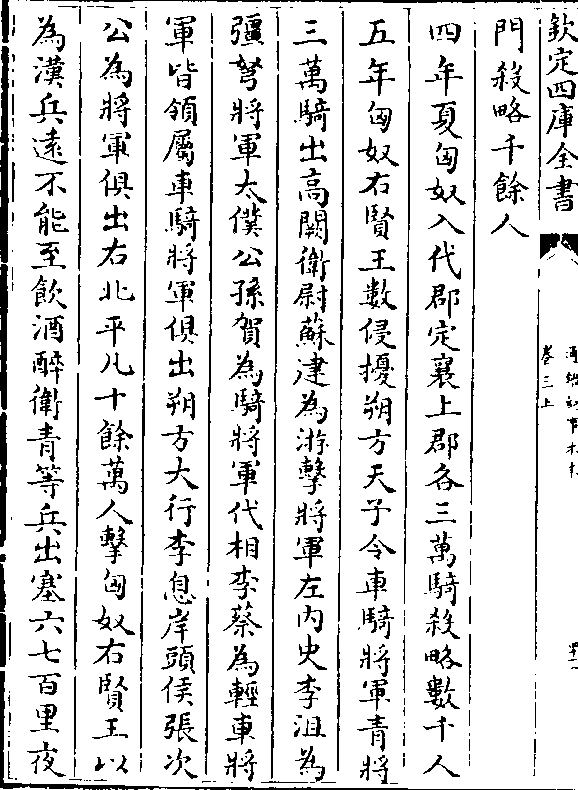 欽定四庫全書
卷三上
門殺略千餘人
四年夏匈奴入代郡定襄上郡各三萬騎殺略數千人
五年匈奴右賢王數侵擾朔方天子令車騎將軍青將
三萬騎出高闕衛尉蘇建為游擊將軍左內史李沮為
彊弩將軍太僕公孫賀為騎將軍代相李蔡為輕車將
軍皆領屬車騎將軍俱出朔方大行李息岸頭侯張次
公為將軍俱出右北平凡十餘萬人擊匈奴右賢王以
為漢兵遠不能至飲酒醉衛青等兵出塞六七百里夜